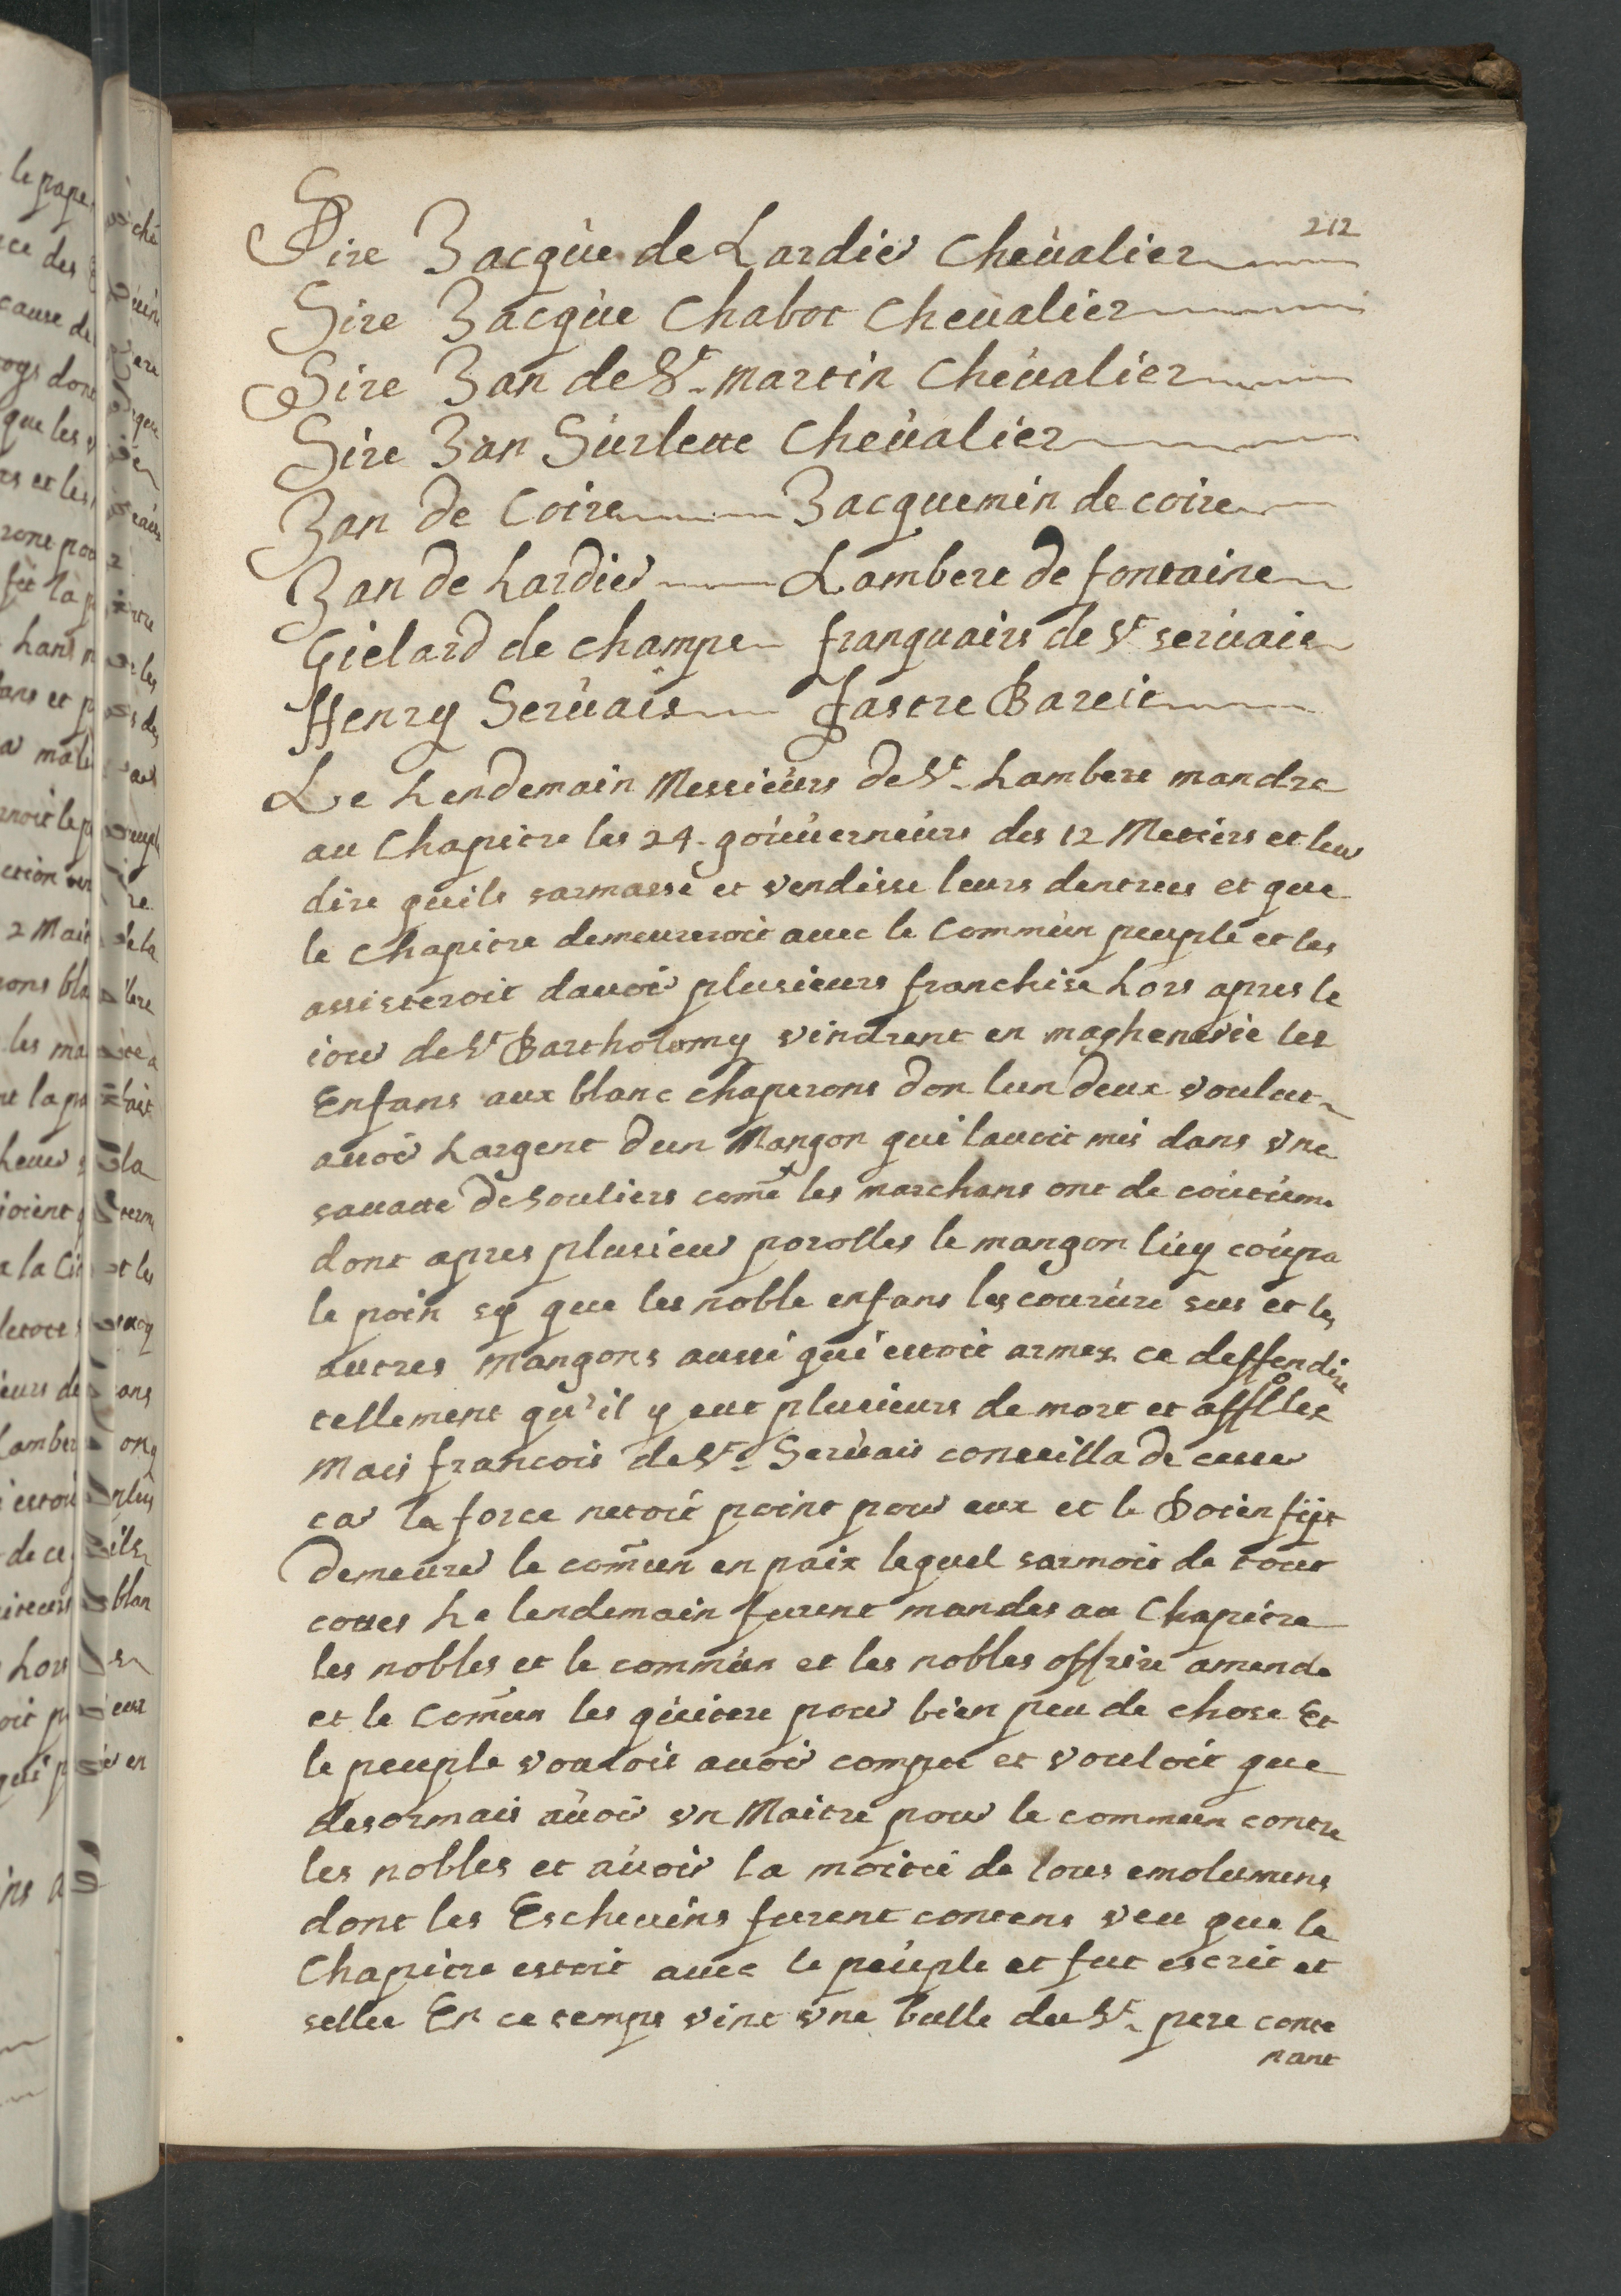 212
Sire Jacque de Lardier Chevalier
Sire Jacque Chabot Chevalier
Sire Jan de St. martin Chevalier
Sire Jan Surlette Chevalier
Jan de Coire Jacquemin de coire
Jan de Lardier Lambert de fontaine
Gielard de champe franquairs de St servais
Henry Servais Fastre Bareit
Le Lendemain Messieurs de St. Lambert mandre
au Chapitre les 24. gouverneurs des 12 Metiers et leur
dire quils sarmasse et vendisse leurs dentrees et que
le chapitre demeureroit avec le commun peuple et les
assisteroit davoir plusieurs franchise Lors apres le
iour de St Bartholomy vindrent en maghenerie les
Enfans aux blanc chaperons don lun deux voulut
avoir Largent dun Mangon qui lavoit mis dans vne
savatte de souliers come les marchans ont de coutume
dont apres plusieur porolles le mangon luy coupa
le poin sy que les noble enfans les courure sus et les
autres mangons aussi qui estoit armez ce deffendire
tellement qu'il y eut plusieurs de mort et affollez
Mais francois de St. Servais conseilla de cesser
car la force netoit point pour eux et le Doien fijt
demeurer le comun en paix lequel sarmoit de tout
cottes Le lendemain furent mandes au Chapitre
les nobles et le commun et les nobles offrire amende
et le Comun les quitere pour bien peu de chose Et
le peuple vouloit avoir compte et vouloit que
desormais avoir vn Maitre pour le commun contre
les nobles et avoir la moitie de tous emolumens
dont les Eschevins furent contens veu que le
Chapitre estoit avec le peuple et fut escrit et
sellee En ce temps vint vne bulle du St. pere conte
nant